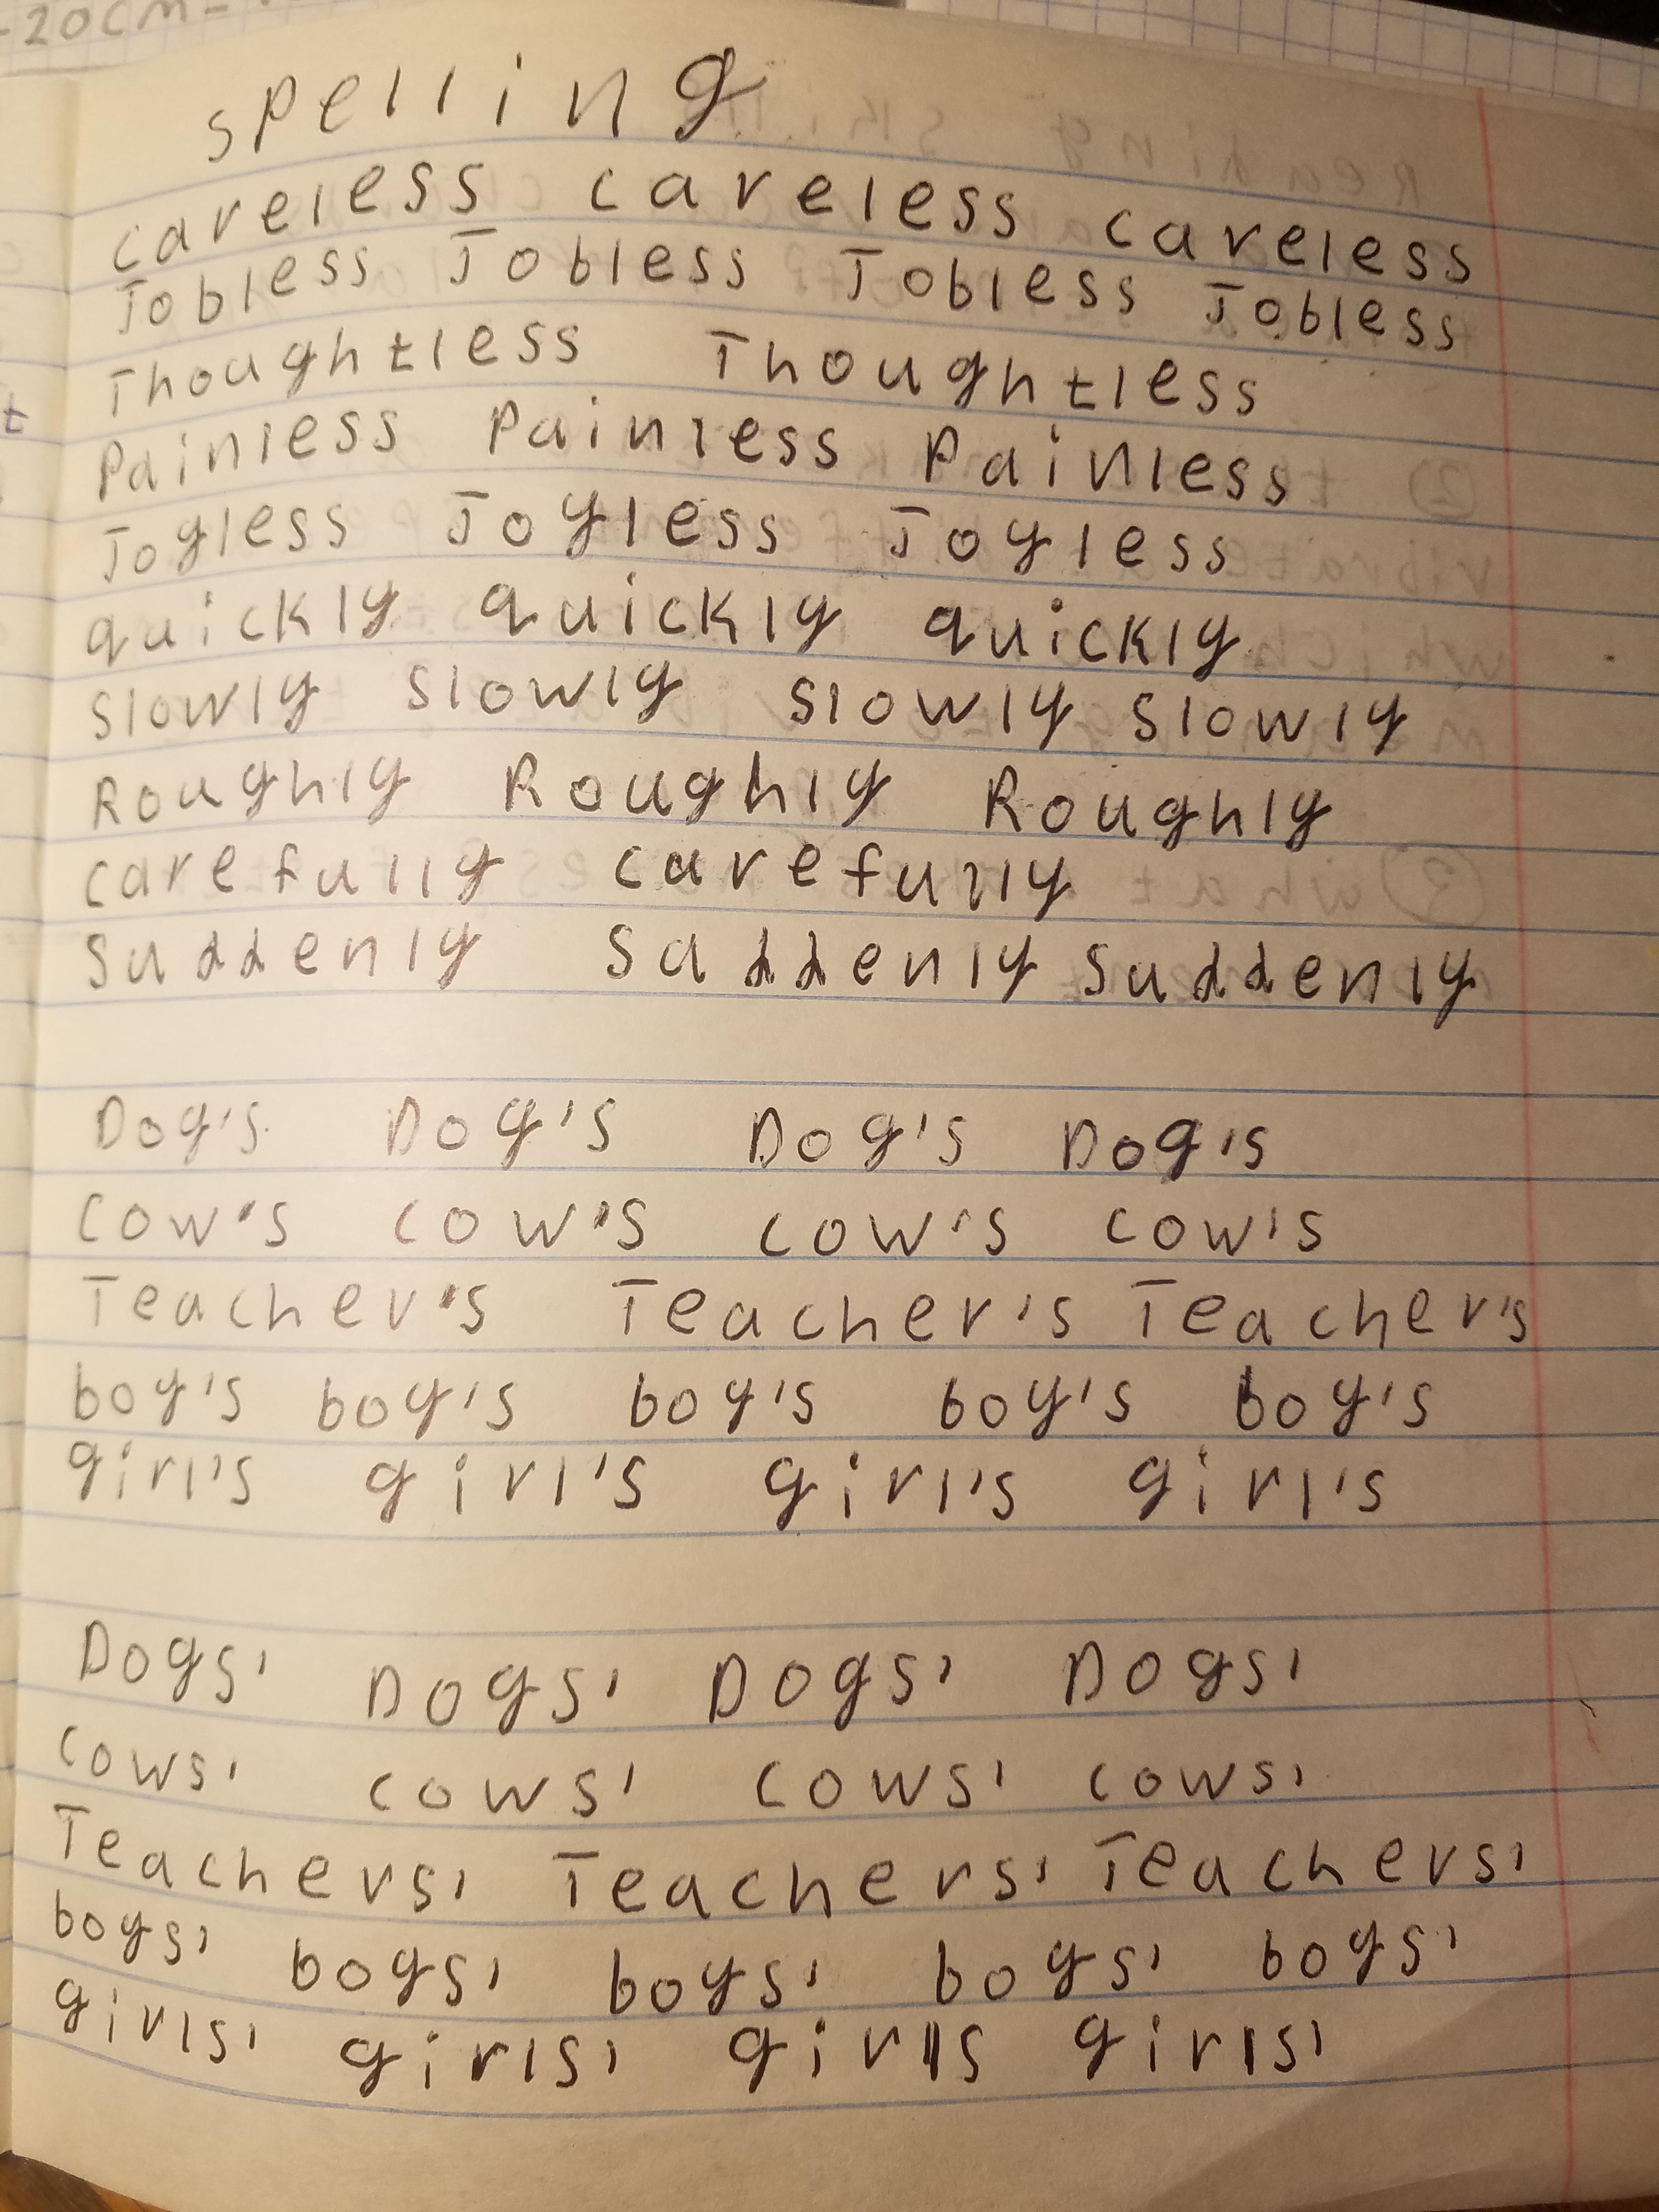 -20cm-
spelling
careless careless careless
Jobless Jobless Jobless Jobless
Thoughtless Thoughtless
Painless Painless Painless
Joyless Joyless Joyless
quickly quickly quickly
slowly slowly slowly slowly
Roughly Roughly Roughly
carefully carefully
Suddenly Suddenly Suddenly
Dog's Dog's Dog's Dog's
cow's cow's cow's cow's
Teacher's Teacher's Teacher's
boy's boy's boy's boy's boy's
girl's girl's girl's girl's
Dogs' Dogs' Dogs' Dogs'
cows' cows' cows' cows'
Teachers' Teachers' Teachers'
boys' boys' boys' boys' boys'
girls' girls' girl's girls'